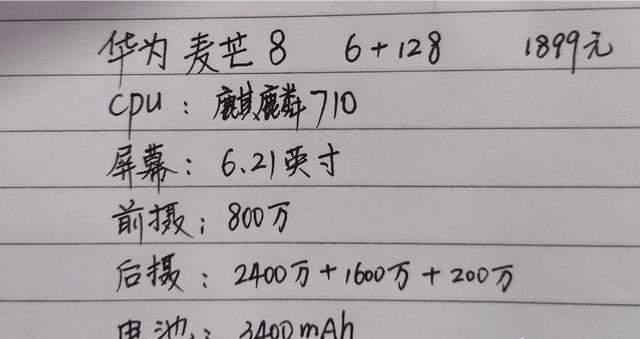 华为 麦芒 8 6+128 1899元
CPU：麒麟710
屏幕：6.21英寸
前摄：800万
后摄：2400万+1600万+200万
电池：3400mAh